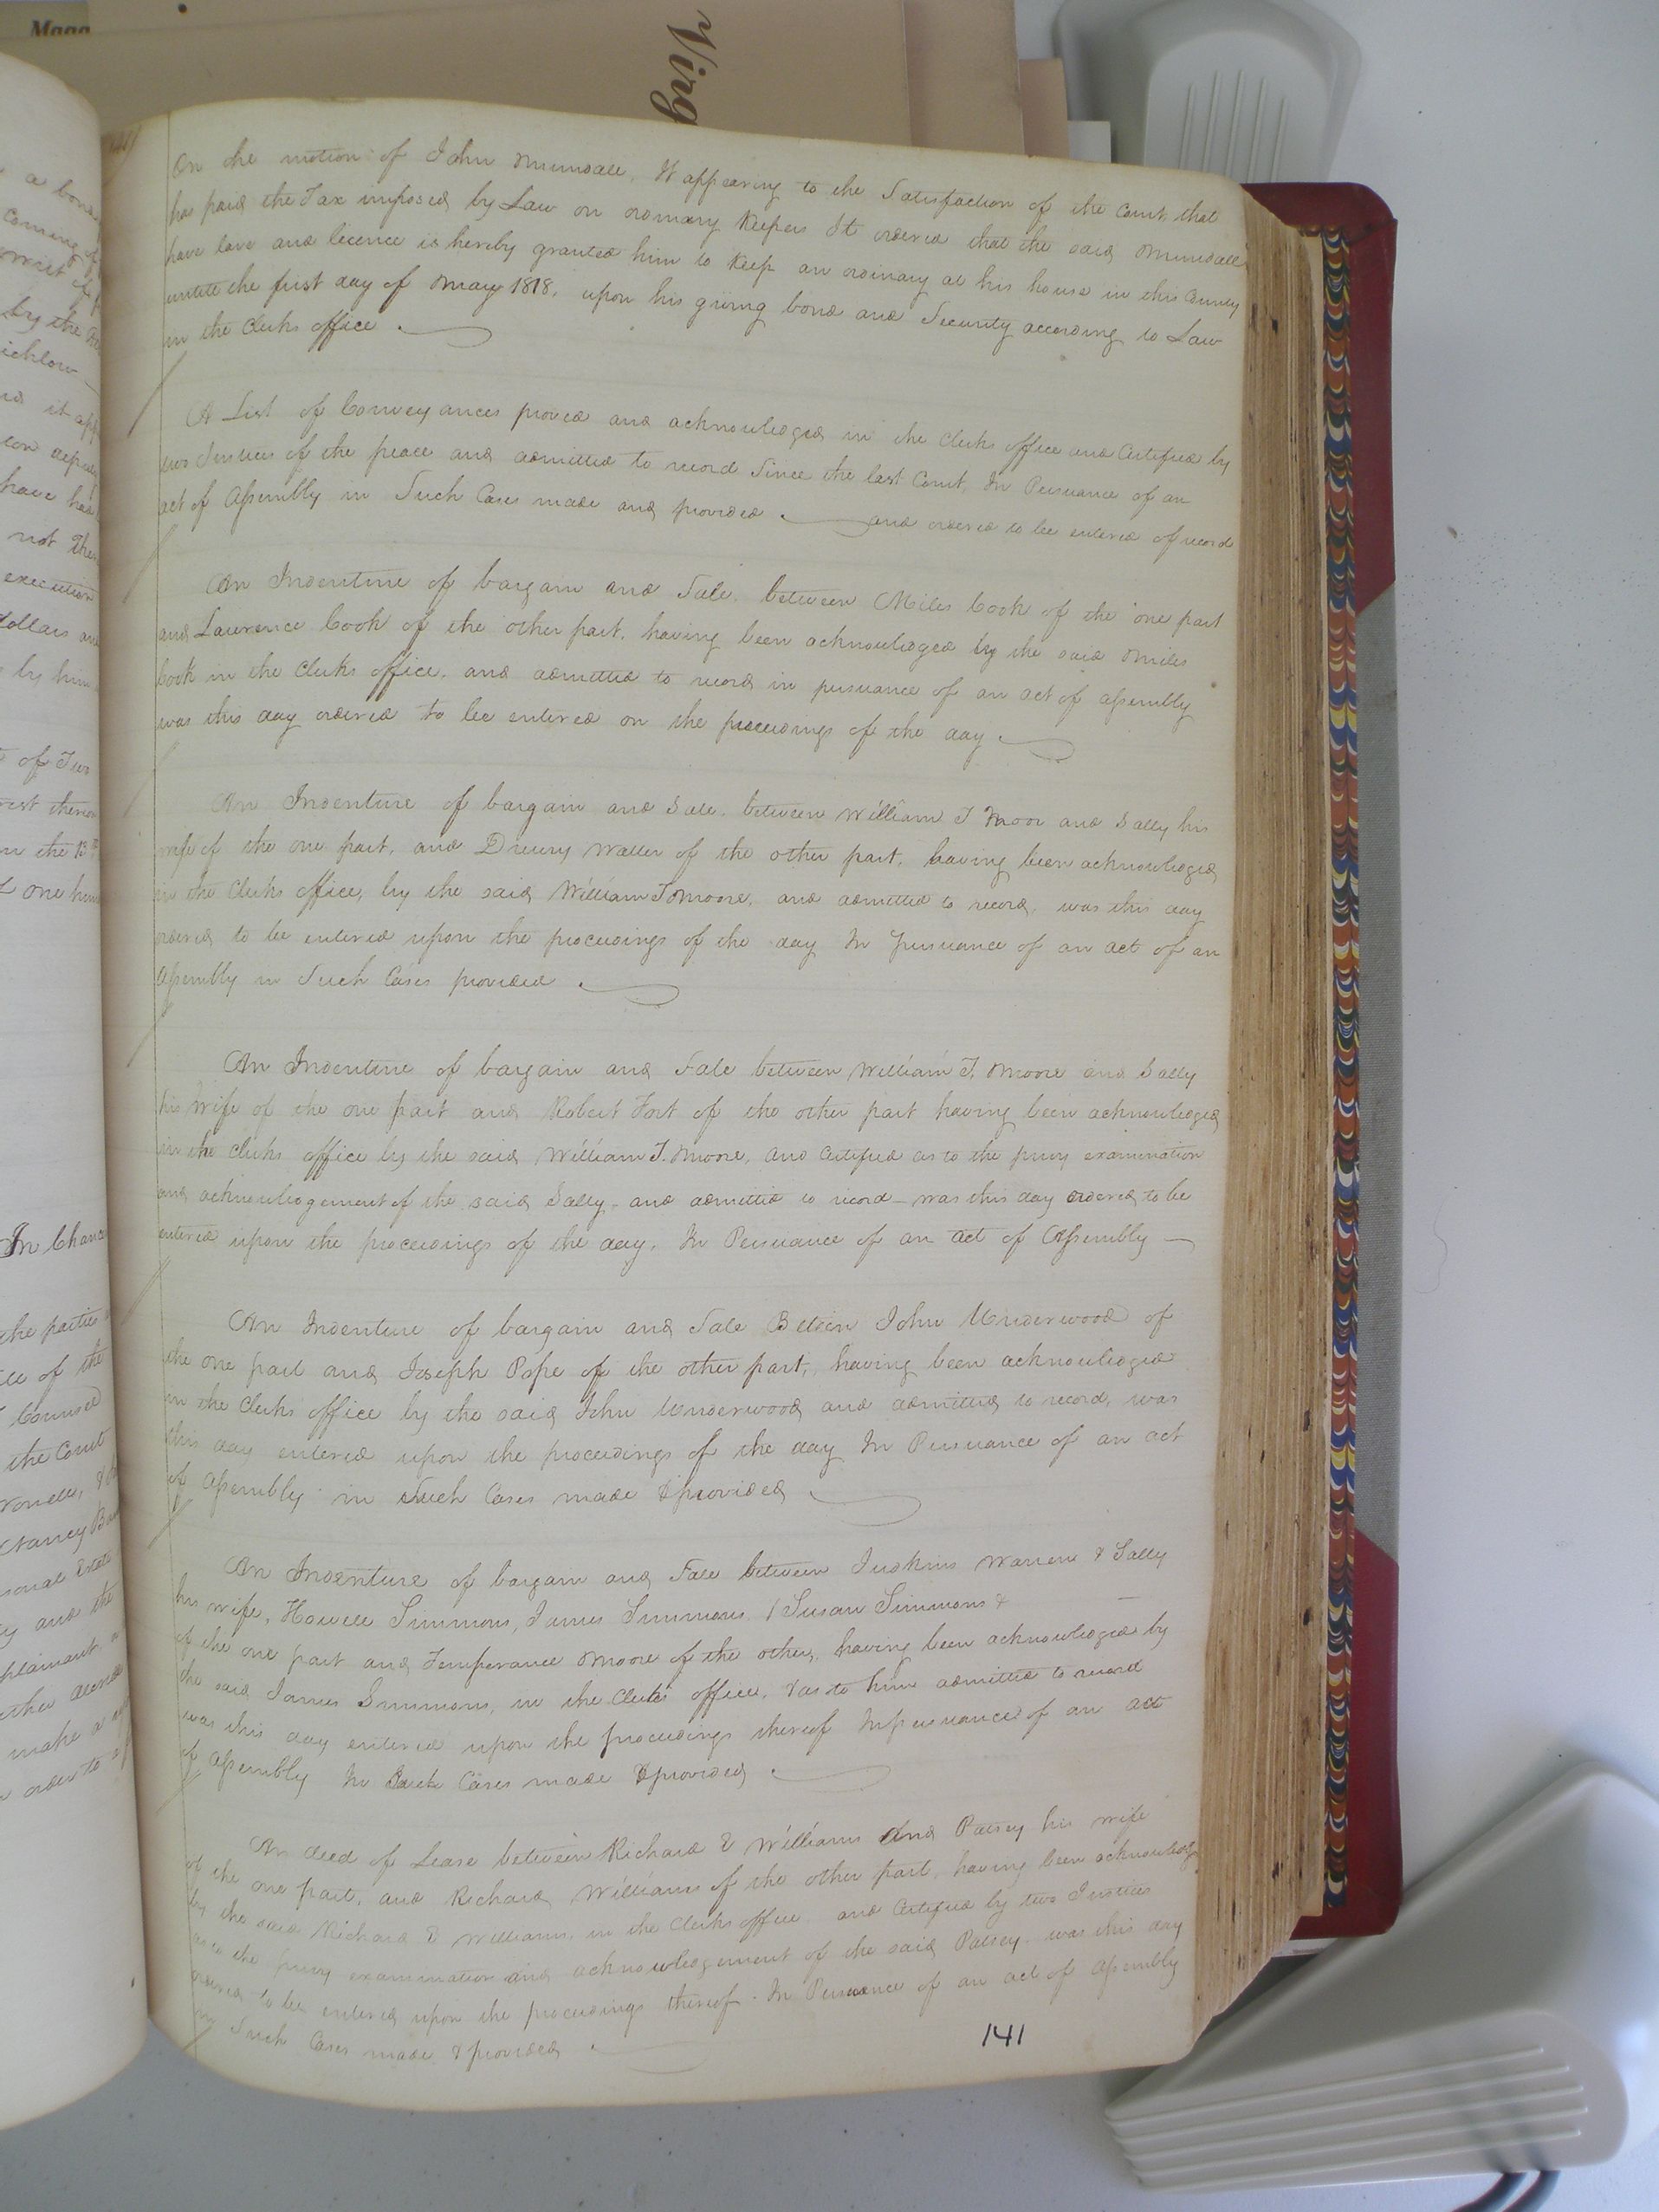 Maga
Virg
On the motion of John Mundall, It appearing to the Satisfaction of the Court that
has paid the Tax imposed by Law on ordinary Keepers It ordered that the said Mundall
have lave and licence is hereby granted him to Keep an ordinary at his house in this County
untill the first day of May 1818, upon his giving bond and Security according to Law
in the Clerks office
A List of Conveyances proved and acknowledged in the Clerks office and Certified by
two Justices of the peace and admitted to record Since the last Court, In Persuance of an
act of Assembly in Such Cases made and provided and ordered to be entered of record
An Indenture of bargain and Sale, between Miles Cook of the one part
and Lawrence Cook of the other part, having been acknowledged by the said Miles
Cook in the Clerks office, and admitted to record in persuance of an act of assembly
was this day ordered to be entered on the proceedings of the day
An Indenture of bargain and Sale, between William T Moor and Sally his
wife of the one part, and Drewry Waller of the other part, having been acknowledged
in the Clerks office, by the said William T Moore, and admitted to record, was this day
ordered to be entered upon the proceedings of the day In Persuance of an act of an
Assembly in Such Cases provided
An Indenture of bargain and Sale between William T. Moore and Sally
his Wife of the one part and Robert Fort of the other part having been acknowledged
in the Clerks office by the said William T. Moore, and Certified as to the privy examination
and acknowledgement of the said Sally, and admitted to record was this day ordered to be
entered upon the proceedings of the day, In Persuance of an act of Assembly
An Indenture of bargain and Sale Between John Underwood of
the one part and Joseph Pope of the other part, having been acknowledged
in the Clerks office by the said John Underwood and admitted to record, was
this day entered upon the proceedings of the day In Persuance of an act
of Assembly in Such Cases made & provided
An Indenture of bargain and Sale between Judkins Warren & Sally
his wife, Howell Simmons, James Simmons, Susan Simmons &
of the one part and Temperance Moore of the other, having been acknowledged by
the said James Simmons, in the Clerks office, & as to him admitted to record
was this day entered upon the proceedings thereof In persuance of an act
of Assembly In Such Cases made & provided
An deed of Lease between Richard E Williams And Patsey his wife
of the one part, and Richard Williams of the other part, having been acknowledg
by the said Richard E Williams, in the Clerks office and Certified by two Justices
as to the privy examination and acknowledgement of the said Patsey was this day
ordered to be entered upon the proceedings thereof. In Persuance of an act of Assembly
in Such Cases made & provided
141